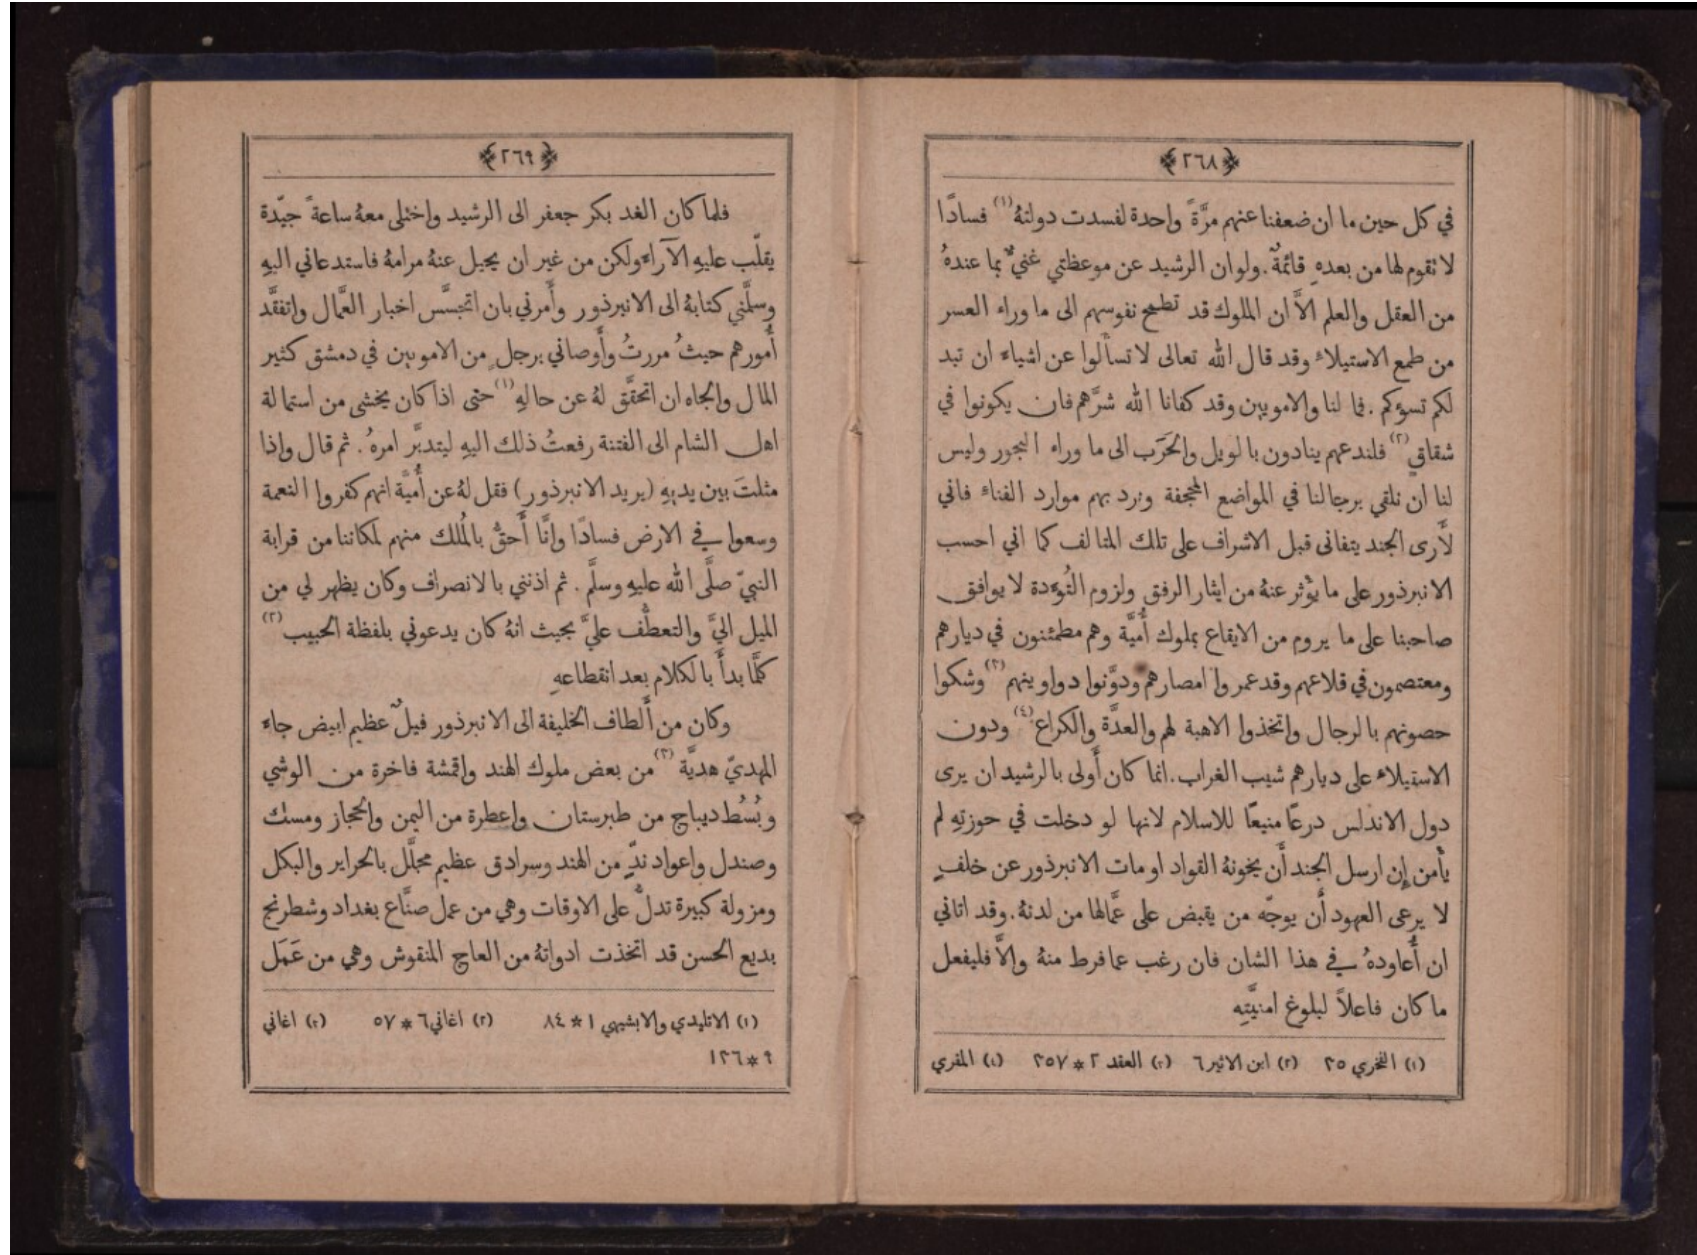 ﴿٢٦٨﴾
في كل حين ما ان ضعفنا عنهم مرَّةً واحدة لفسدت دولتهُ (١) فسادًا
لا تقوم لها من بعدهِ قائمةٌ. ولو ان الرشيد عن موعظتي غنيٌّ بما عندهُ
من العقل والعلم الاَّ ان الملوك قد تطمح نفوسهم الى ما وراء العسر
من طمع الاستيلاءِ وقد قال الله تعالى لا تسأَلوا عن اشياءَ ان تبد
لكم تسوءكم. فما لنا والامويين وقد كفانا الله شرَّهم فان يكونوا في
شقاقٍ (٢) فلندعهم ينادون بالويل والحَرَب الى ما وراء البحور وليس
لنا ان نلقي برجالنا في المواضع المجحفة ونرد بهم موارد الفناءَ فاني
لأرى الجند يتفانى قبل الاشراف على تلك المتالف كما اني احسب
الانبرذور على ما يؤثر عنهُ من ايثار الرفق ولزوم التُوءَدة لا يوافق
صاحبنا على ما يروم من الايقاع بملوك أُميَّة وهم مطمئنون في ديارهم
ومعتصمون في قلاعهم وقد عمروا امصارهم ودوَّنوا دواوينهم (٣) وشكوا
حصونهم بالرجال واتخذوا الاهبة لهم والعدَّة والكراع (٤) ودون
الاستيلاءَ على ديارهم شيب الغراب. انما كان أَولى بالرشيد ان يرى
دول الاندلس درعًا منيعًا للاسلام لانها لو دخلت في حوزتهِ لم
يأمن إِن ارسل الجند أَن يخونهُ القواد او مات الانبرذور عن خلفٍ
لا يرعى العهود أَن يوجّه من يقبض على عمَّالها من لدنهُ. وقد اتاني
ان أُعاودهُ في هذا الشان فان رغب عما فرط منهُ والاَّ فليفعل
ما كان فاعلاً لبلوغ امنيَّتِه
(١) الفخري ٢٥ (٢) ابن الاثير ٦ (٣) العقد ٢ * ٢٥٧ (٤) المقري
﴿٢٦٩﴾
فلما كان الغد بكر جعفر الى الرشيد واختلى معهُ ساعةً جيّدة
يقلّب عليهِ الآراءَ ولكن من غير ان يحيل عنهُ مرامهُ فاستدعاني اليهِ
وسلَّمني كتابهُ الى الانبرذور وأَمرني بان اتجسَّس اخبار العمَّال واتفقَّد
أُمورهم حيثُ مررتُ وأَوصاني برجلٍ من الامويين في دمشق كثير
المال والجاه ان اتحقَّق لهُ عن حالهِ (١) حتى اذا كان يخشى من استمالة
اهل الشام الى الفتنة رفعتُ ذلك اليهِ ليتدبَّر امرهُ. ثم قال واذا
مثلتَ بين يديهِ (يريد الانبرذور) فقل لهُ عن أُميَّة انهم كفروا النعمة
وسعوا في الارض فسادًا وانَّا أَحقُّ بالمُلك منهم لمكاننا من قرابة
النبيّ صلَّى الله عليهِ وسلَّم. ثم اذنني بالانصراف وكان يظهر لي من
الميل اليَّ والتعطُّف عليَّ بحيث انهُ كان يدعوني بلفظة الحبيب (٢)
كلَّما بدأَ بالكلام بعد انقطاعهِ
وكان من أَلطاف الخليفة الى الانبرذور فيلٌ عظيم ابيض جاءَ
المهديّ هديَّة (٣) من بعض ملوك الهند واقمشة فاخرة من الوشي
وبُسُط ديباج من طبرستان واعطرة من اليمن والحجاز ومسك
وصندل واعواد ندٍّ من الهند وسرادق عظيم مجلَّل بالحراير والبكل
ومزولة كبيرة تدلُّ على الاوقات وهي من عمل صنَّاع بغداد وشطرنج
بديع الحسن قد اتخذت ادواتهُ من العاج المنقوش وهي من عَمَل
(١) الاتليدي والابشيهي ١ * ٨٤ (٢) اغاني ٦ * ٥٧ (٣) اغاني
٩ * ١٢٦